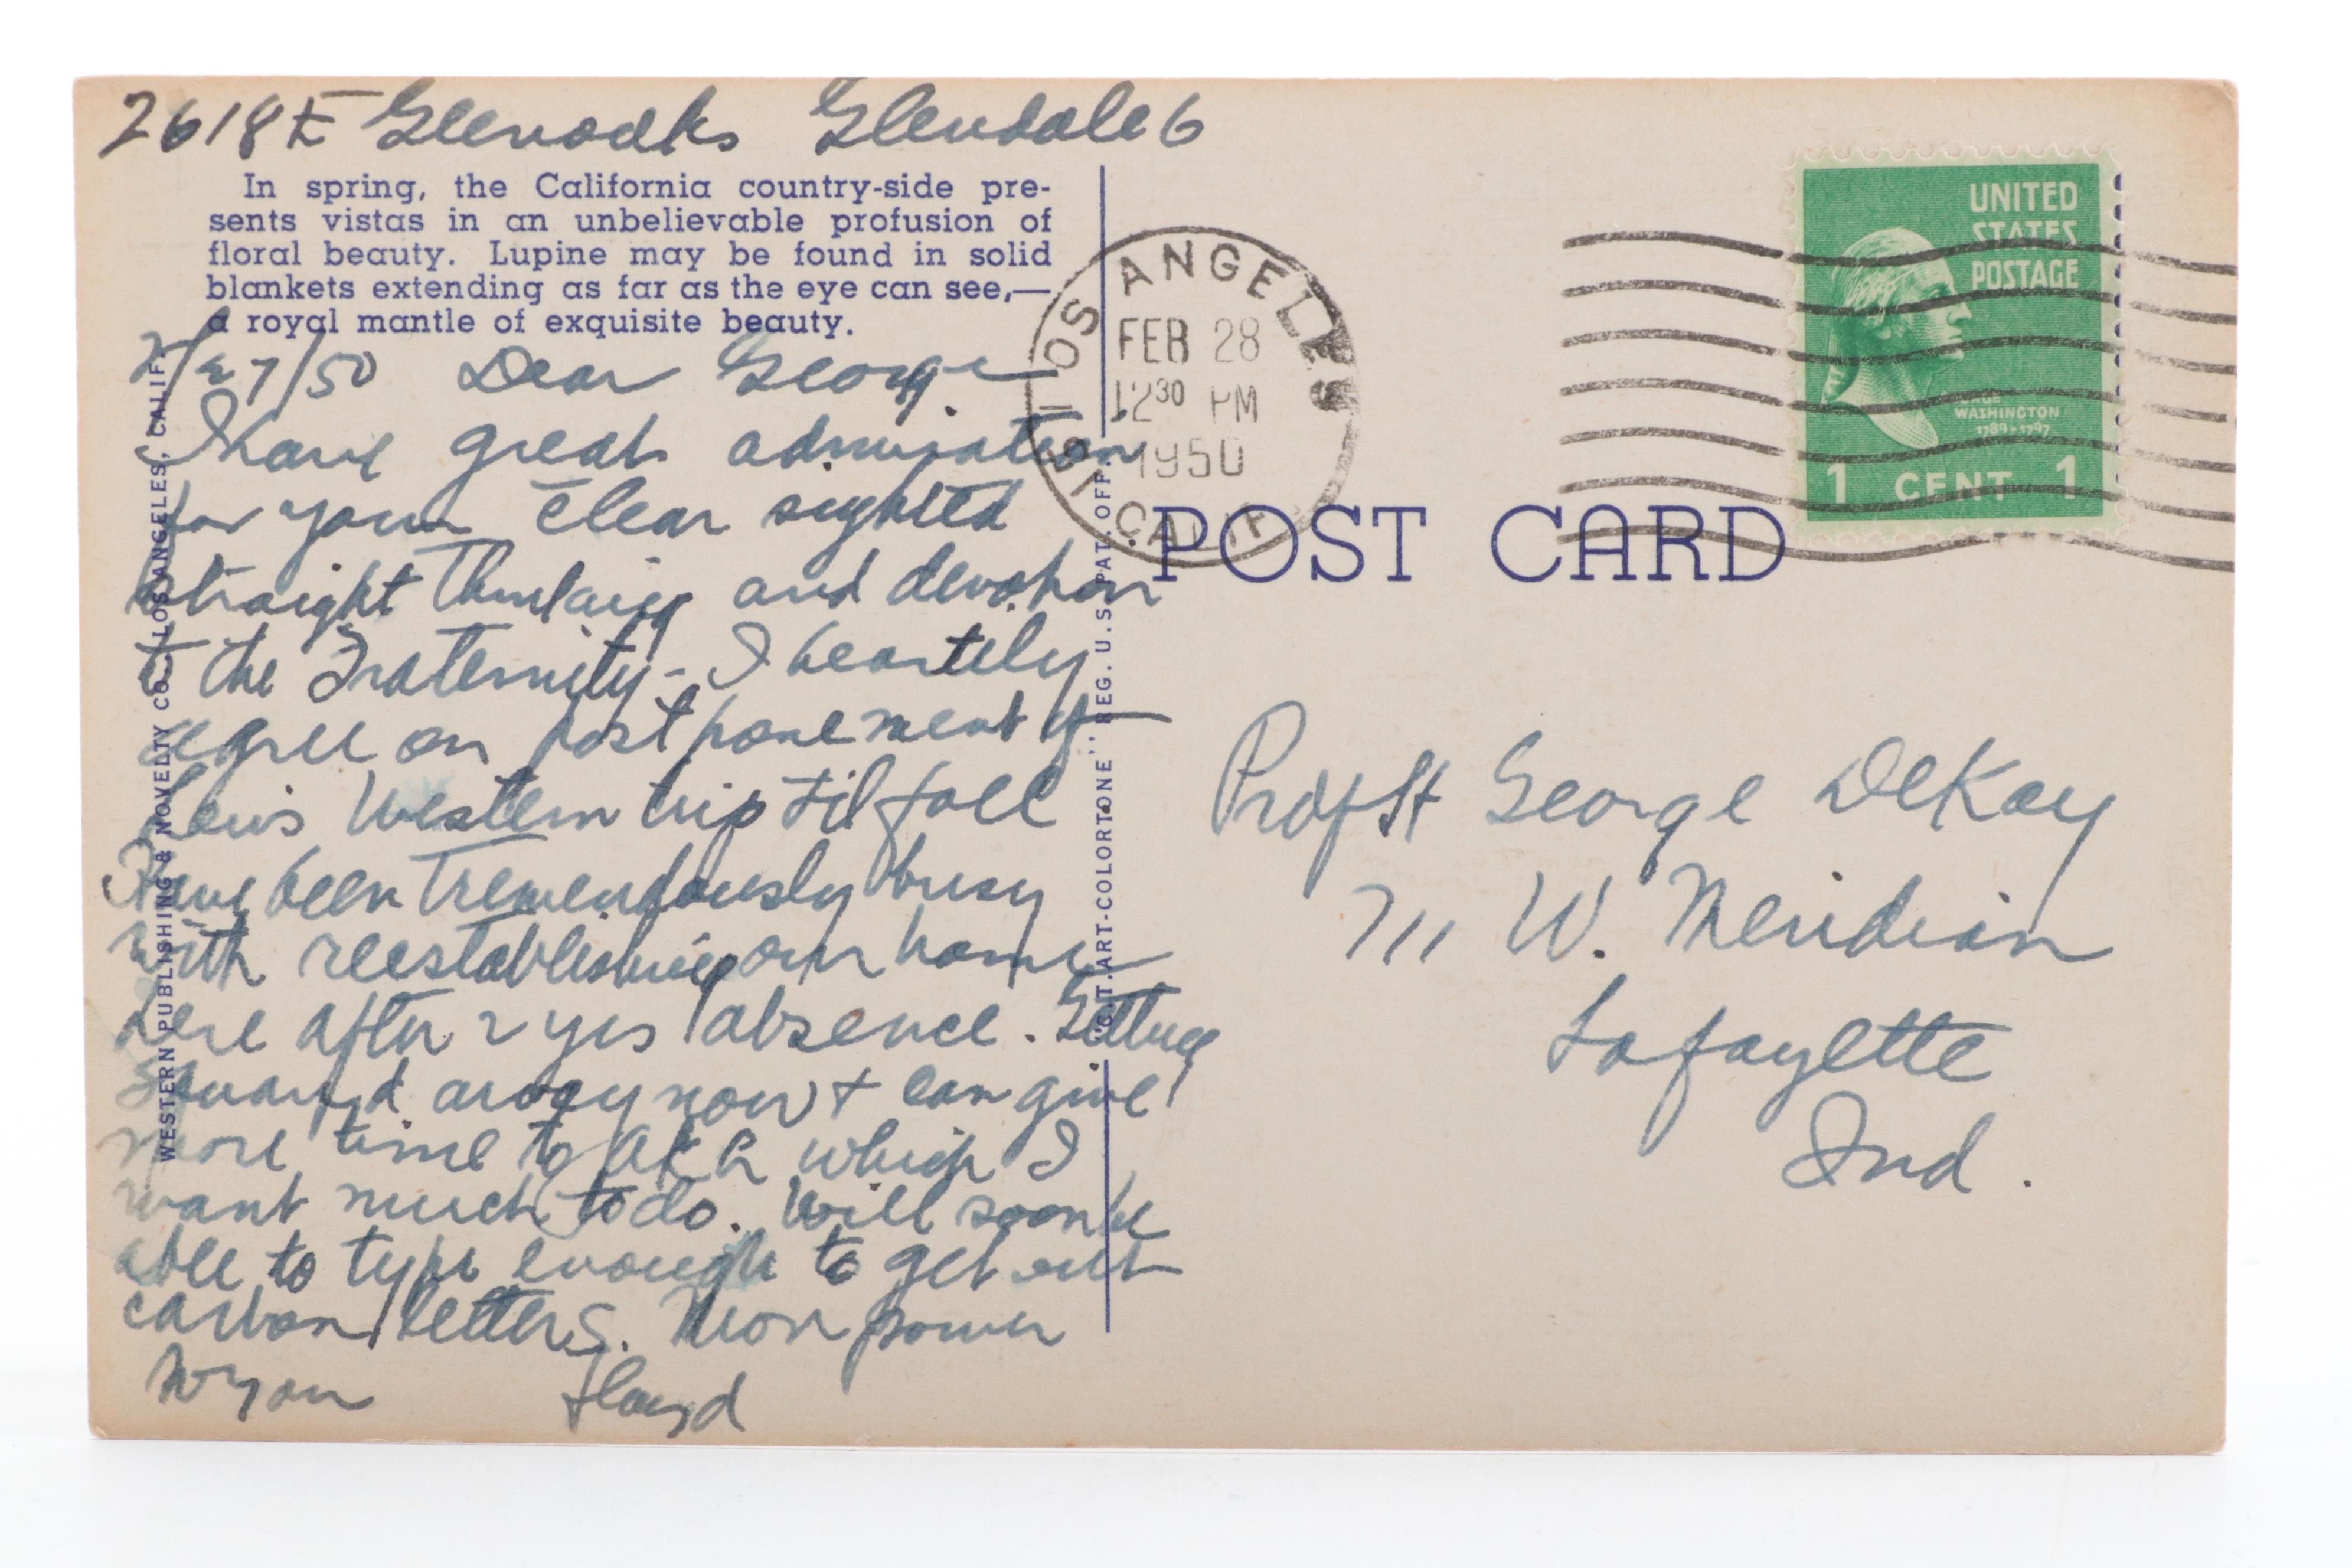 2618 E Glenoaks Glendale 6
In spring, the California country-side pre-
sents vistas in an unbelievable profusion of
floral beauty. Lupine may be found in solid
blankets extending as far as the eye can see,—
a royal mantle of exquisite beauty.
2/27/50 Dear George
I have great admiration
for your clear sighted
straight thinking and devotion
to the Fraternity - I heartily
agree on postponement of
Lewis Western trip til fall
Have been tremendously busy
with reestablishing our home
here after 2 yrs absence. Getting
squared away now + can give
more time to which I
want much to do. Will soon be
able to type enough to get out
carbon letters. More power
to you Floyd
WESTERN PUBLISHING & NOVELTY CO., LOS ANGELES, CALIF.
"C.T. ART-COLORTONE" REG. U.S. PAT. OFF.
LOS ANGELES
FEB 28
12 30 PM
1950
CALIF.
UNITED
STATES
POSTAGE
WASHINGTON
1789-1797
1 CENT 1
POST CARD
George DeKay
711 W. Meridian
Lafayette
Ind.